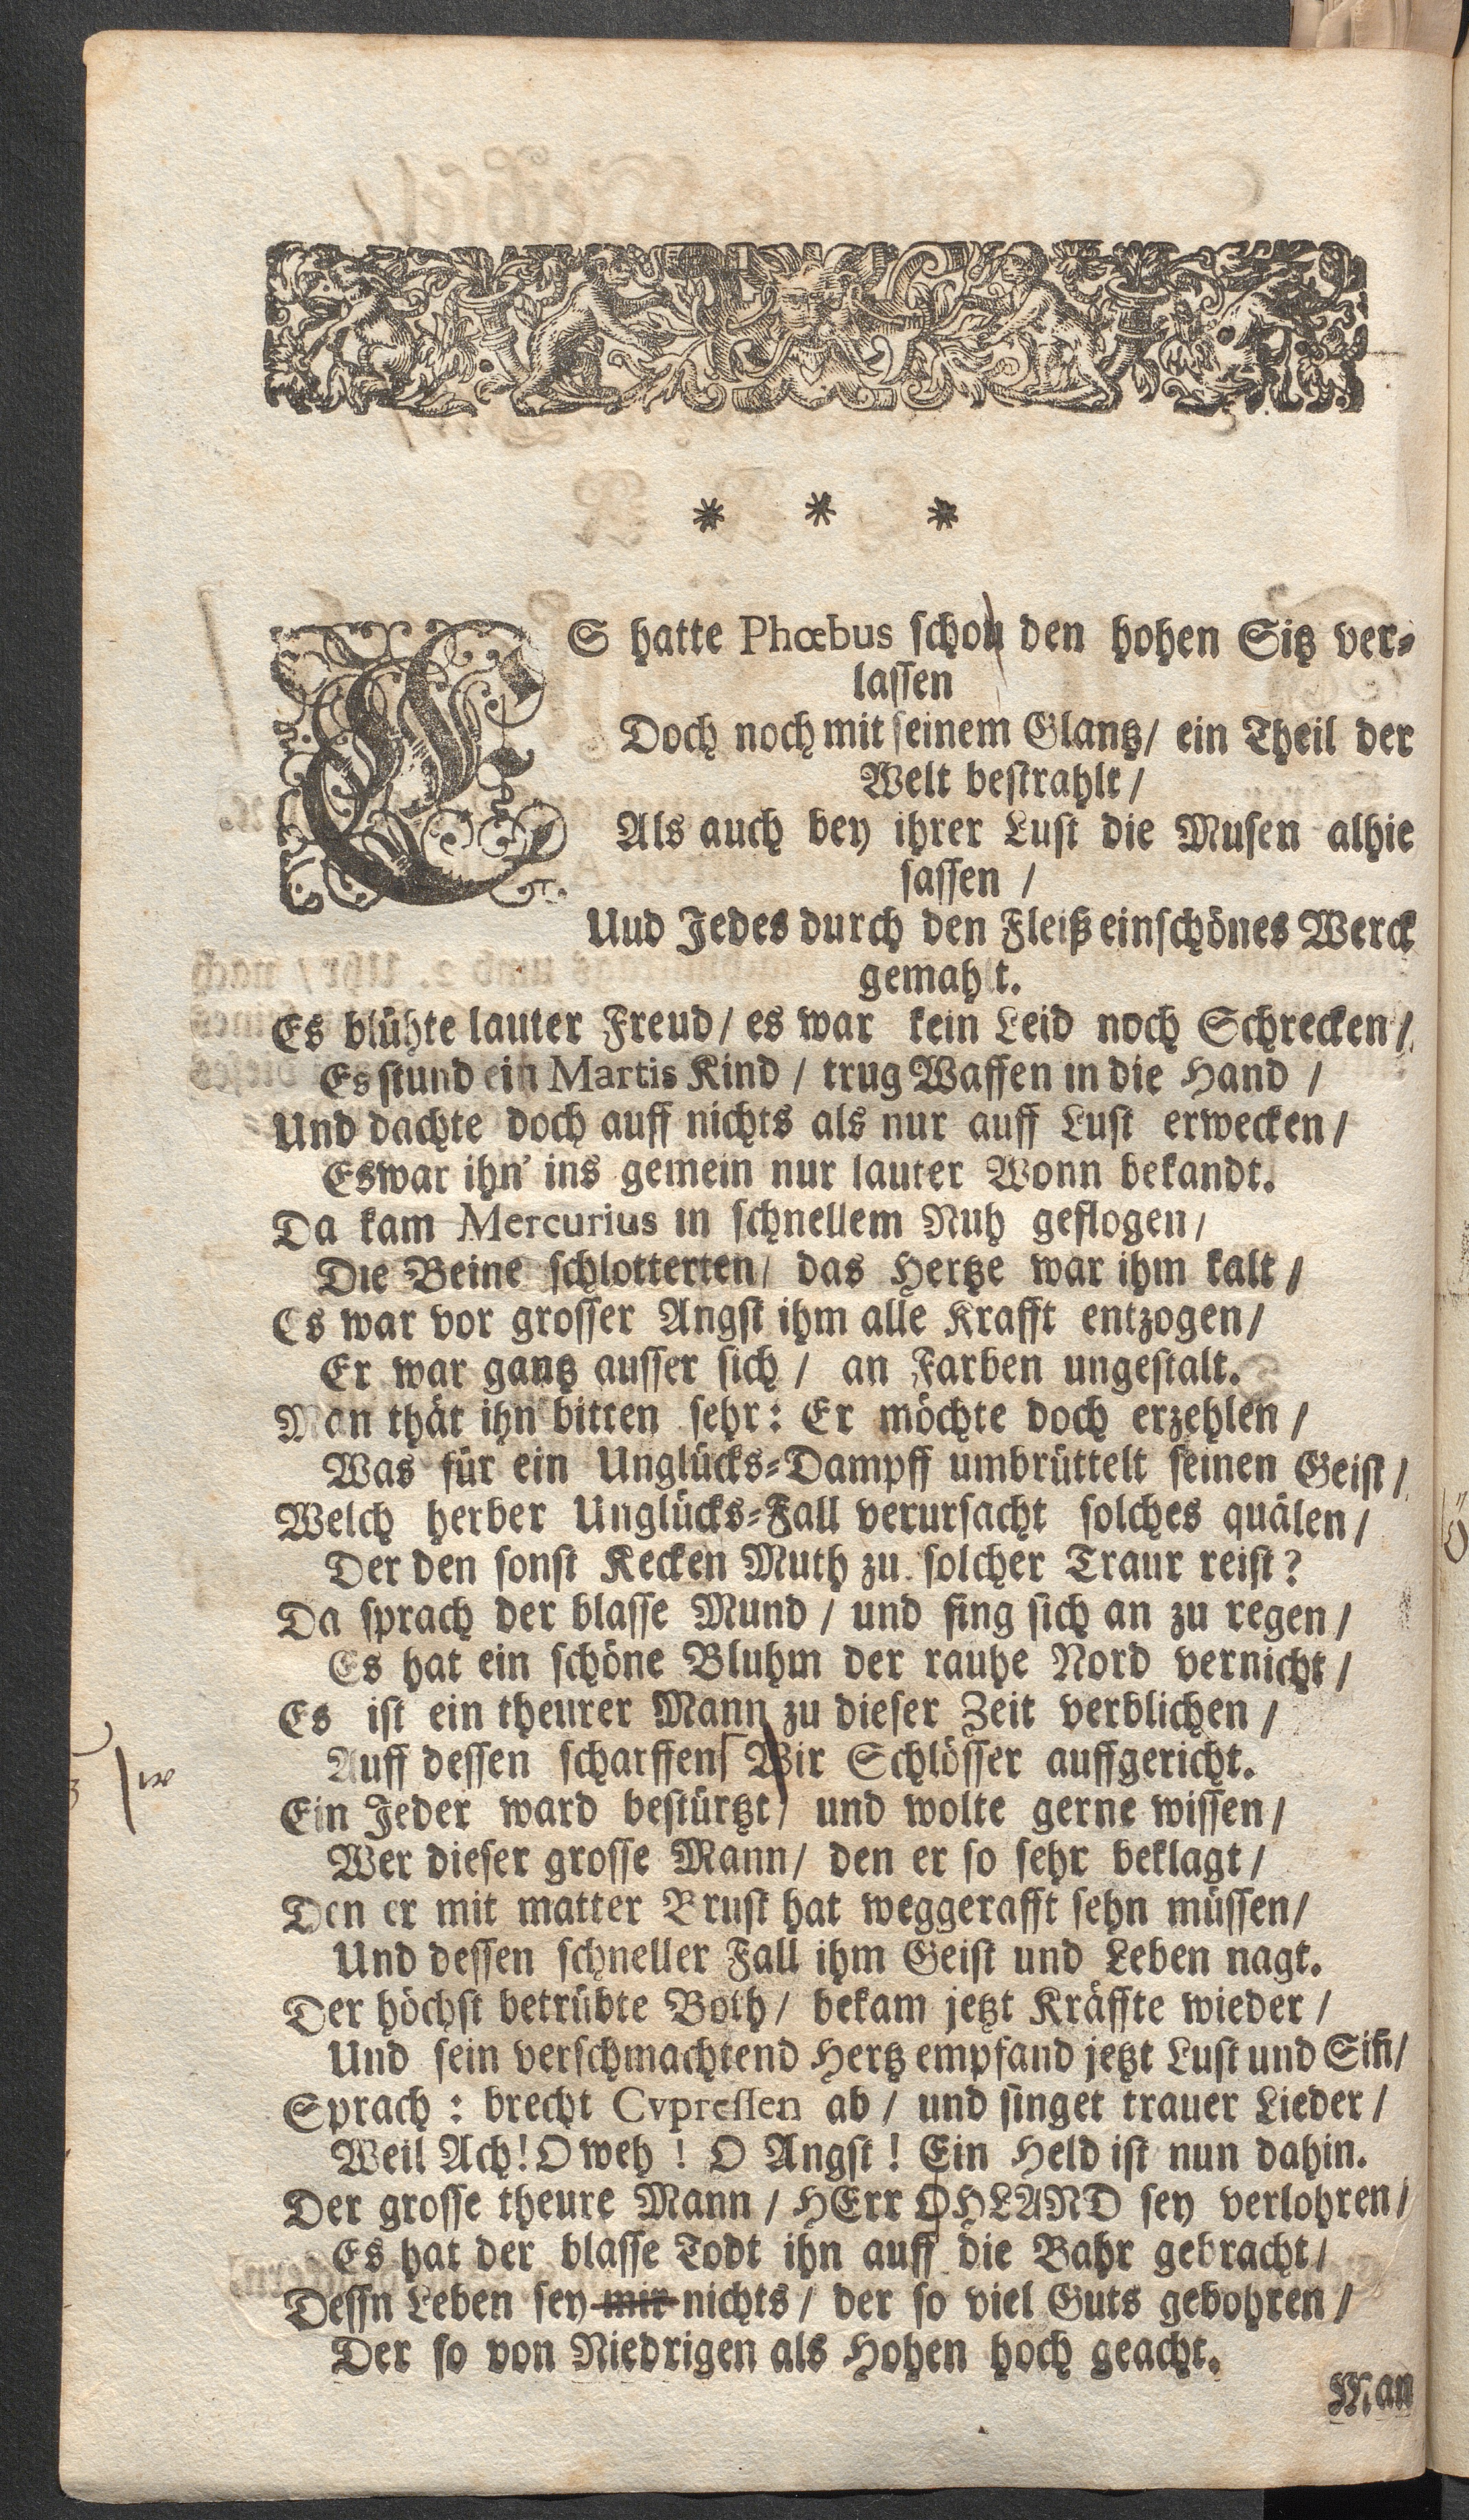 * * *
ES hatte Phœbus schon den hohen Sitz ver-
lassen
Doch noch mit seinem Glantz/ ein Theil der
Welt bestrahlt/
Als auch bey ihrer Lust die Musen alhie
sassen /
Uud Jedes durch den Fleiß einschönes Werck
gemahlt.
Es blühte lauter Freud/ es war kein Leid noch Schrecken/
Es stund ein Martis Kind / trug Waffen in die Hand /
Und dachte doch auff nichts als nur auff Lust erwecken/
Eswar ihn' ins gemein nur lauter Wonn bekandt.
Da kam Mercurius in schnellem Nuh geflogen/
Die Beine schlotterten/ das Hertze war ihm kalt/
Es war vor grosser Angst ihm alle Krafft entzogen/
Er war gantz ausser sich/ an Farben ungestalt.
Man thät ihn bitten sehr: Er möchte doch erzehlen /
Was für ein Unglücks-Dampff umbrüttelt seinen Geist/
Welch herber Unglücks-Fall verursacht solches quälen/
Der den sonst Kecken Muth zu solcher Traur reist?
Da sprach der blasse Mund / und fing sich an zu regen/
Es hat ein schöne Bluhm der rauhe Nord vernicht/
Es ist ein theurer Mann zu dieser Zeit verblichen /
Auff dessen scharffen Wir Schlösser auffgericht.
w
Ein Jeder ward bestürtzt/ und wolte gerne wissen/
Wer dieser grosse Mann/ den er so sehr beklagt/
Den er mit matter Brust hat weggerafft sehn müssen/
Und dessen schneller Fall ihm Geist und Leben nagt.
Der höchst betrübte Both/ bekam jetzt Kräffte wieder/
Und sein verschmachtend Hertz empfand jetzt Lust und Siñ/
Sprach : brecht Cypressen ab/ und singet trauer Lieder/
Weil Ach! O weh ! O Angst! Ein Held ist nun dahin.
Der grosse theure Mann / HErr OHLAND sey verlohren/
Es hat der blasse Todt ihn auff die Bahr gebracht/
Dessn Leben sey mir nichts/ der so viel Guts gebohren/
Der so von Niedrigen als Hohen hoch geacht.
Man